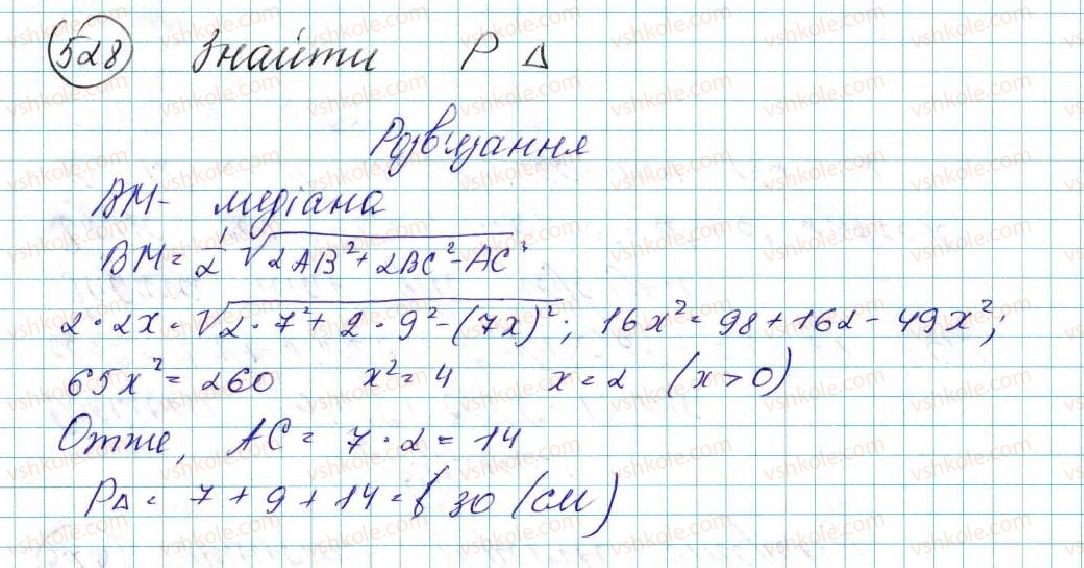 528 Знайти P Δ
Розв'язання
BM - медіана
BM = 1/2 √(2AB² + 2BC² - AC²)
2 · 2x = √(2 · 7² + 2 · 9² - (7x)²); 16x² = 98 + 162 - 49x²;
65x² = 260 x² = 4 x = 2 (x > 0)
Отже, AC = 7 · 2 = 14
PΔ = 7 + 9 + 14 = 30 (см)